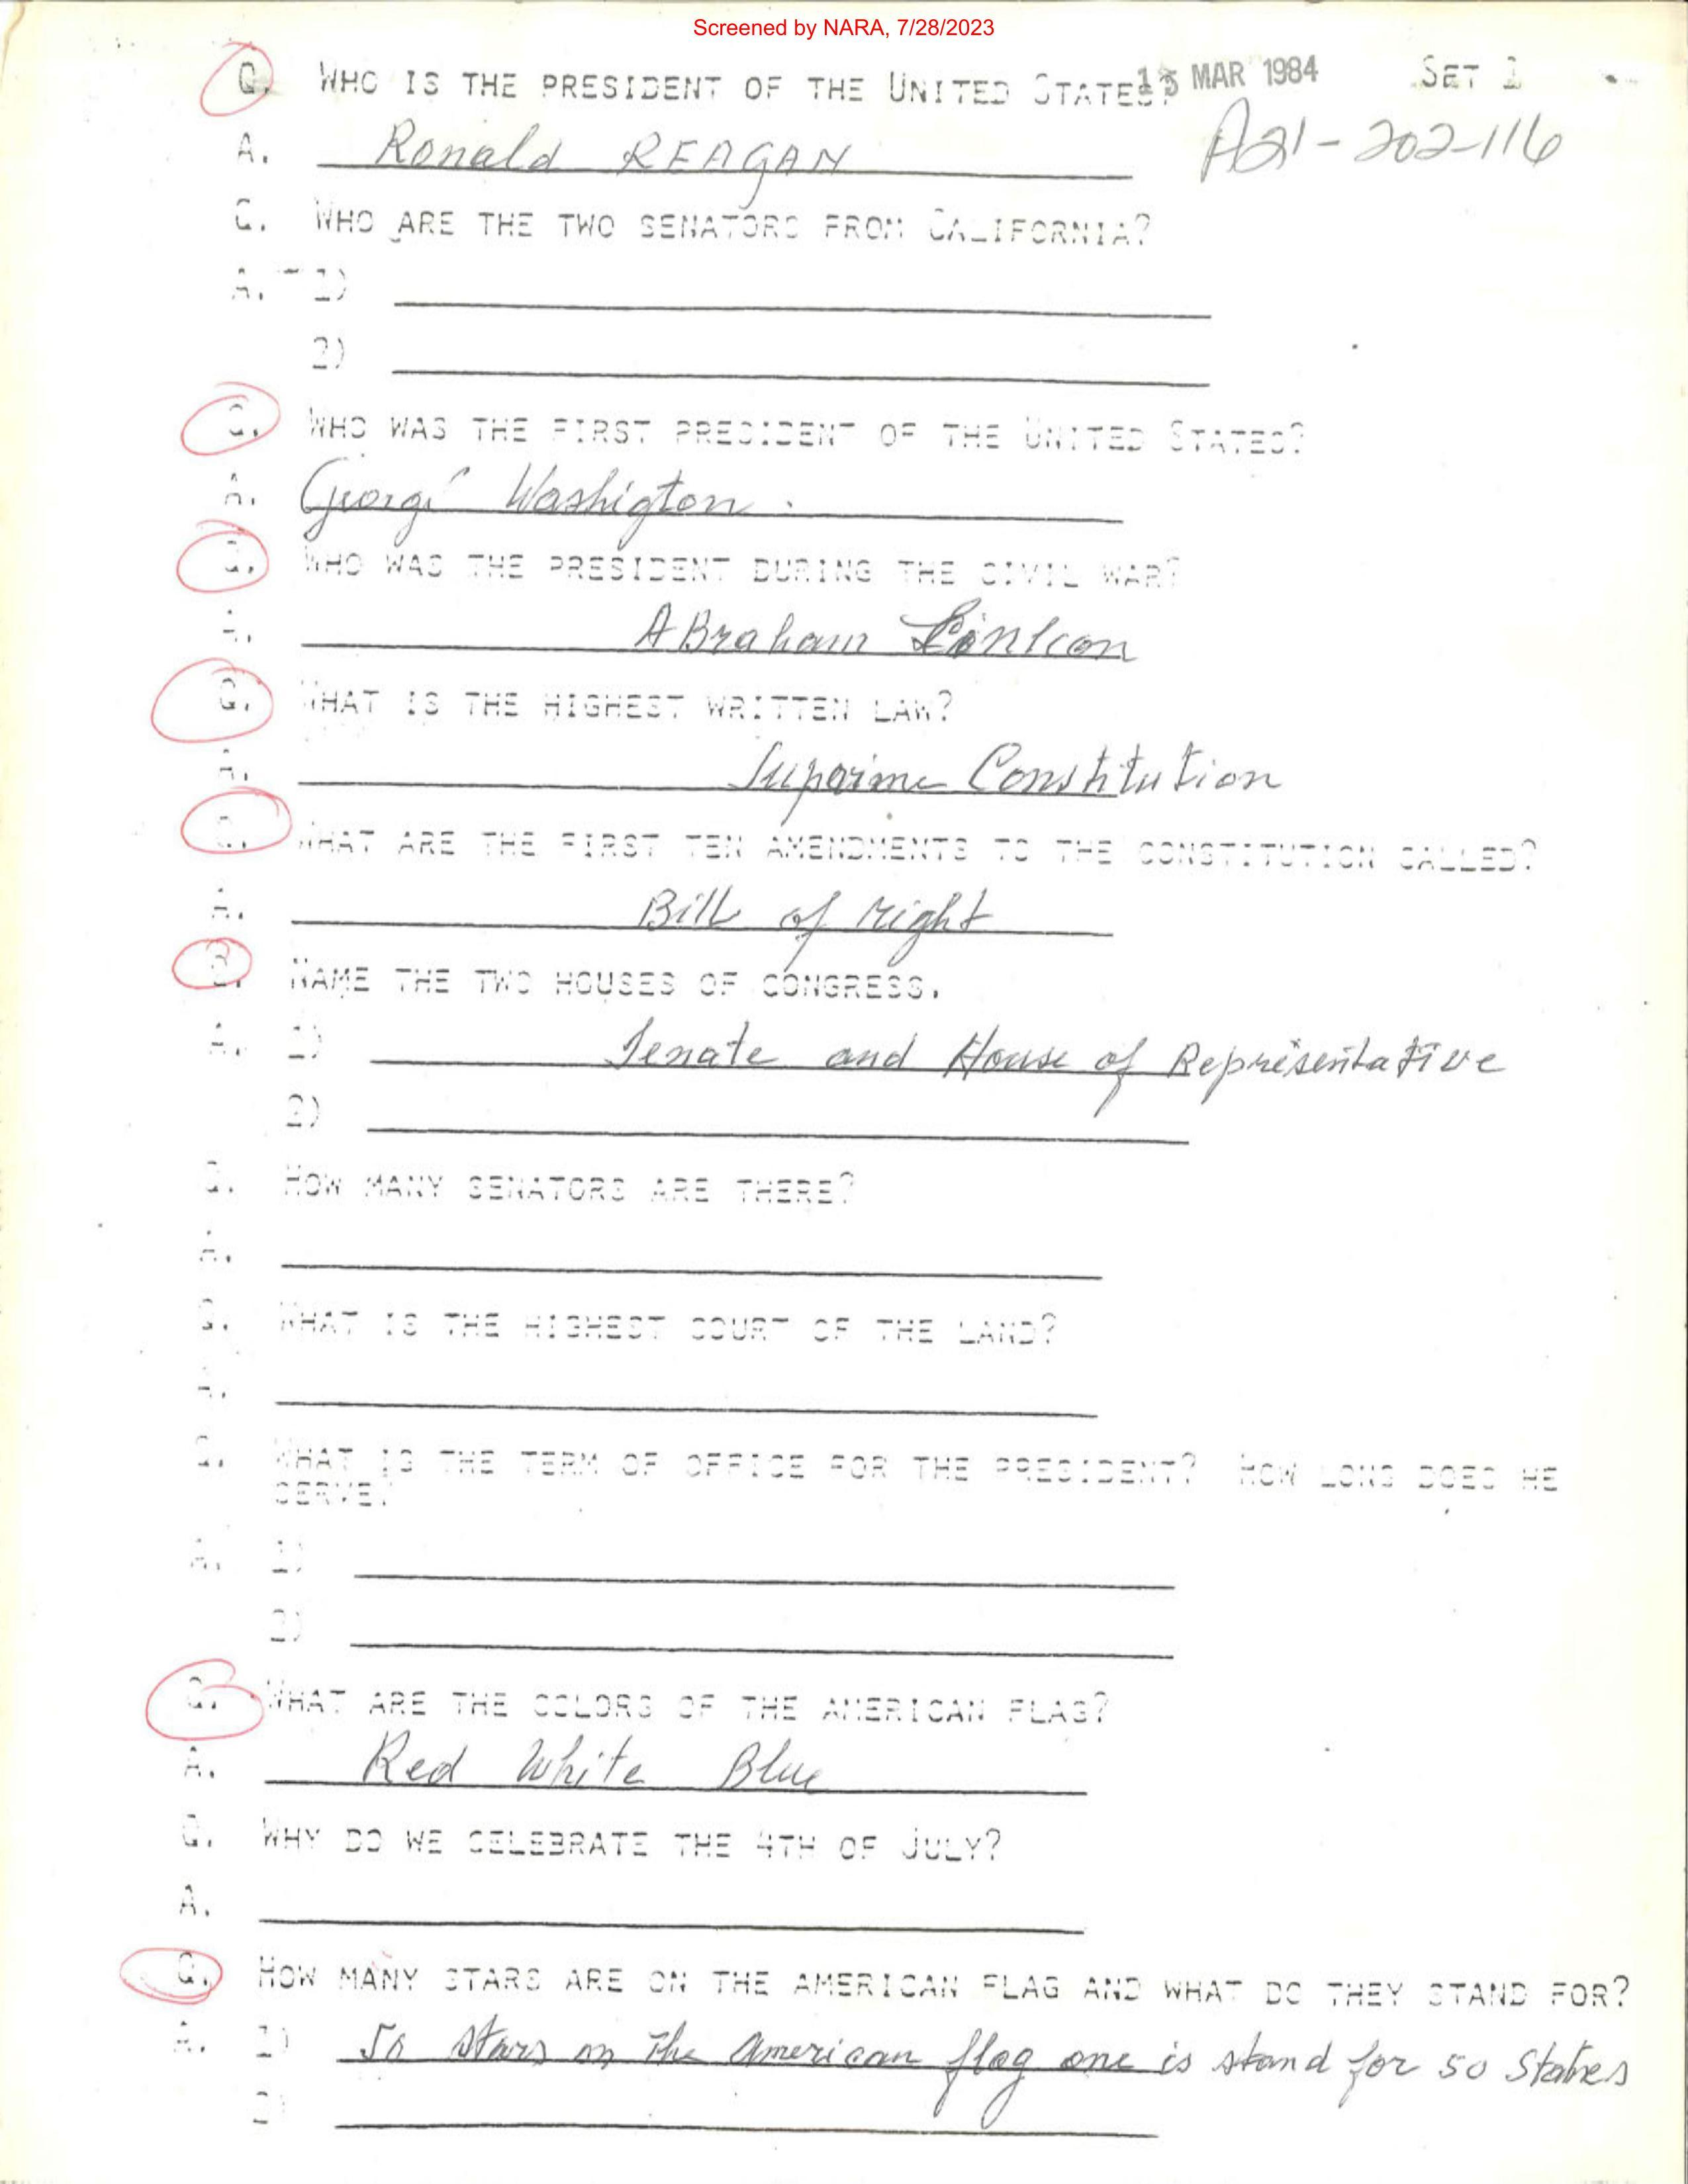 Screened by NARA, 7/28/2023
Q. WHO IS THE PRESIDENT OF THE UNITED STATES? 13 MAR 1984 SET 1
A. Ronald REAGAN A21-202-116
Q. WHO ARE THE TWO SENATORS FROM CALIFORNIA?
A. 1)
2)
Q. WHO WAS THE FIRST PRESIDENT OF THE UNITED STATES?
A. Georgé Washigton.
Q. WHO WAS THE PRESIDENT DURING THE CIVIL WAR?
A. ABraham Linlcon
Q. WHAT IS THE HIGHEST WRITTEN LAW?
A. Suprime Constitution
Q. WHAT ARE THE FIRST TEN AMENDMENTS TO THE CONSTITUTION CALLED?
A. Bill of right
Q. NAME THE TWO HOUSES OF CONGRESS.
A. 1) Senate and House of Representative
2)
Q. HOW MANY SENATORS ARE THERE?
A.
Q. WHAT IS THE HIGHEST COURT OF THE LAND?
A.
Q. WHAT IS THE TERM OF OFFICE FOR THE PRESIDENT? HOW LONG DOES HE
SERVE?
A. 1)
2)
Q. WHAT ARE THE COLORS OF THE AMERICAN FLAG?
A. Red White Blue
Q. WHY DO WE CELEBRATE THE 4TH OF JULY?
A.
Q. HOW MANY STARS ARE ON THE AMERICAN FLAG AND WHAT DO THEY STAND FOR?
A. 1) 50 stars on the American flag one is stand for 50 States
2)